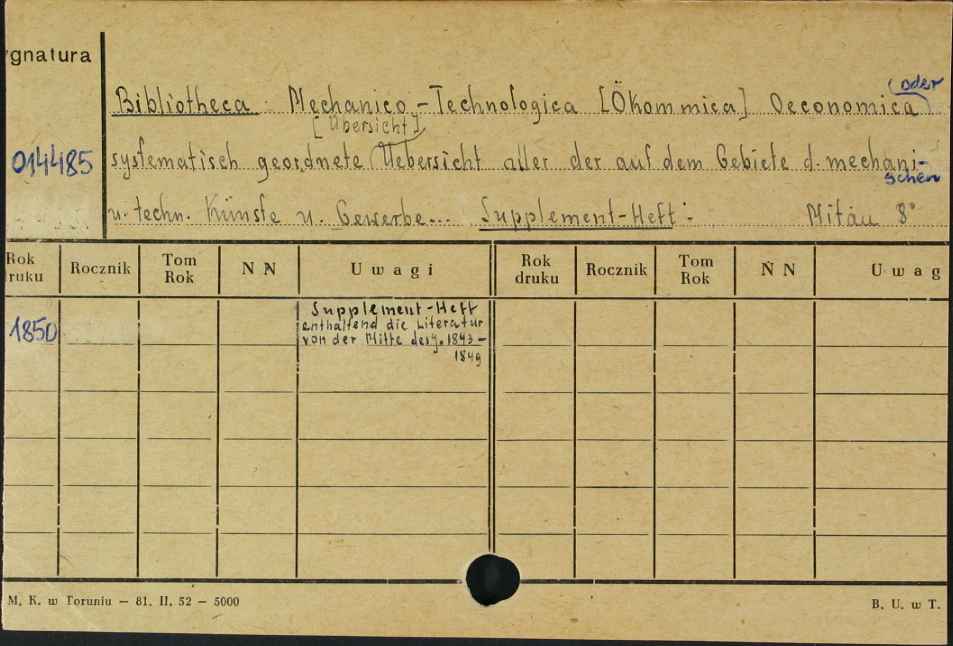 ygnatura
(oder
Bibliotheca Mechanico-Technologica [Ökonomica] Oeconomica
[Übersicht]
014485 systematisch geordnete Uebersicht aller der auf dem Gebiete d. mechani-
schen
u. techn. Künste u. Gewerbe... Supplement-Heft. Mitau 8°
Rok
ruku Rocznik Tom
Rok N N Uwagi Rok
druku Rocznik Tom
Rok N N Uwag
1850 Supplement-Heft
enthaltend die Literatur
von der Mitte des J. 1843-
1849
M. K. w Toruniu — 81. II. 52 — 5000 B. U. w T.